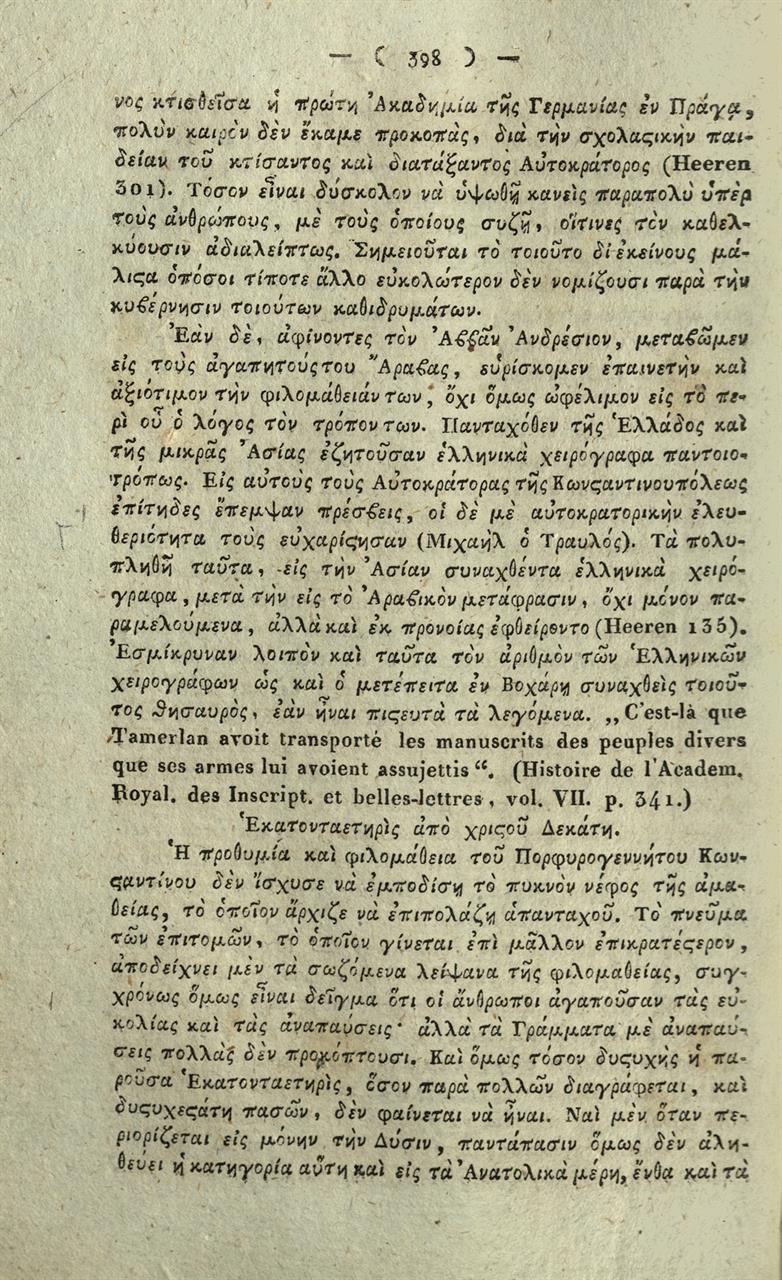 — ( 398 ) —
νος κτισθεῖσα ἡ πρώτη Ἀκαδημία τῆς Γερμανίας ἐν Πράγᾳ,
πολὺν καιρὸν δὲν ἔκαμε προκοπὰς, διὰ τὴν σχολαςικὴν παι-
δείαν τοῦ κτίσαντος καὶ διατάξαντος Αὐτοκράτορος (Heeren
301). Τόσον εἶναι δύσκολον νὰ ὑψωθῇ κανεὶς παραπολὺ ὑπὲρ
τοὺς ἀνθρώπους, μὲ τοὺς ὁποίους συζῇ, οἵτινες τὸν καθελ-
κύουσιν ἀδιαλείπτως. Σημειοῦται τὸ τοιοῦτο δι' ἐκείνους μά-
λιςα ὁπόσοι τίποτε ἄλλο εὐκολώτερον δὲν νομίζουσι παρὰ τὴν
κυβέρνησιν τοιούτων καθιδρυμάτων.
Ἐὰν δὲ, ἀφίνοντες τὸν Ἀββᾶν Ἀνδρέσιον, μεταβῶμεν
εἰς τοὺς ἀγαπητούς του Ἄραβας, εὑρίσκομεν ἐπαινετὴν καὶ
ἀξιότιμον τὴν φιλομάθειάν των, ὄχι ὅμως ὠφέλιμον εἰς τὸ πε-
ρὶ οὗ ὁ λόγος τὸν τρόπον των. Πανταχόθεν τῆς Ἑλλάδος καὶ
τῆς μικρᾶς Ἀσίας ἐζητοῦσαν ἑλληνικὰ χειρόγραφα παντοιο-
τρόπως. Εἰς αὐτοὺς τοὺς Αὐτοκράτορας τῆς Κωνςαντινουπόλεως
ἐπίτηδες ἔπεμψαν πρέσβεις, οἱ δὲ μὲ αὐτοκρατορικὴν ἐλευ-
θεριότητα τοὺς εὐχαρίςησαν (Μιχαὴλ ὁ Τραυλός). Τὰ πολυ-
πληθῆ ταῦτα, εἰς τὴν Ἀσίαν συναχθέντα ἑλληνικὰ χειρό-
γραφα, μετὰ τὴν εἰς τὸ Ἀραβικὸν μετάφρασιν, ὄχι μόνον πα-
ραμελούμενα, ἀλλὰ καὶ ἐκ προνοίας ἐφθείροντο (Heeren 135).
Ἐσμίκρυναν λοιπὸν καὶ ταῦτα τὸν ἀριθμὸν τῶν Ἑλληνικῶν
χειρογράφων ὡς καὶ ὁ μετέπειτα ἐν Βοχάρῃ συναχθεὶς τοιοῦ-
τος θησαυρὸς, ἐὰν ἦναι πιςευτὰ τὰ λεγόμενα. „C'est-là que
Tamerlan avoit transporté les manuscrits des peuples divers
que ses armes lui avoient assujettis“. (Histoire de l'Academ.
Royal. des Inscript. et belles-lettres, vol. VII. p. 341.)
Ἑκατονταετηρὶς ἀπὸ χριςοῦ Δεκάτη.
Ἡ προθυμία καὶ φιλομάθεια τοῦ Πορφυρογεννήτου Κων-
ςαντίνου δὲν ἴσχυσε νὰ ἐμποδίσῃ τὸ πυκνὸν νέφος τῆς ἀμα-
θείας, τὸ ὁποῖον ἄρχιζε νὰ ἐπιπολάζῃ ἁπανταχοῦ. Τὸ πνεῦμα
τῶν ἐπιτομῶν, τὸ ὁποῖον γίνεται ἐπὶ μᾶλλον ἐπικρατέςερον,
ἀποδείχνει μὲν τὰ σωζόμενα λείψανα τῆς φιλομαθείας, συγ-
χρόνως ὅμως εἶναι δεῖγμα ὅτι οἱ ἄνθρωποι ἀγαποῦσαν τὰς εὐ-
κολίας καὶ τὰς ἀναπαύσεις· ἀλλὰ τὰ Γράμματα μὲ ἀναπαύ-
σεις πολλὰς δὲν προκόπτουσι. Καὶ ὅμως τόσον δυςυχὴς ἡ πα-
ροῦσα Ἑκατονταετηρὶς, ὅσον παρὰ πολλῶν διαγράφεται, καὶ
δυςυχεςάτη πασῶν, δὲν φαίνεται νὰ ἦναι. Ναὶ μὲν ὅταν πε-
ριορίζεται εἰς μόνην τὴν Δύσιν, παντάπασιν ὅμως δὲν ἀλη-
θεύει ἡ κατηγορία αὕτη καὶ εἰς τὰ Ἀνατολικὰ μέρη, ἔνθα καὶ τὰ